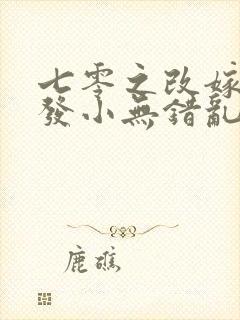 七零之改嫁
發小無錯亂
鹿礁